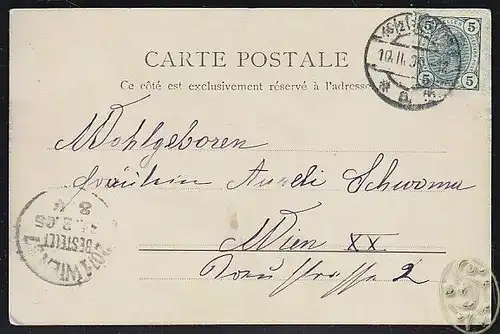 CARTE POSTALE
Ce côté est exclusivement réservé à l'adresse
5 5
5 5
Wohlgeboren
Fräulein Aureli Schwoma
Wien XX.
strasse 2
BESTELLT
WIEN